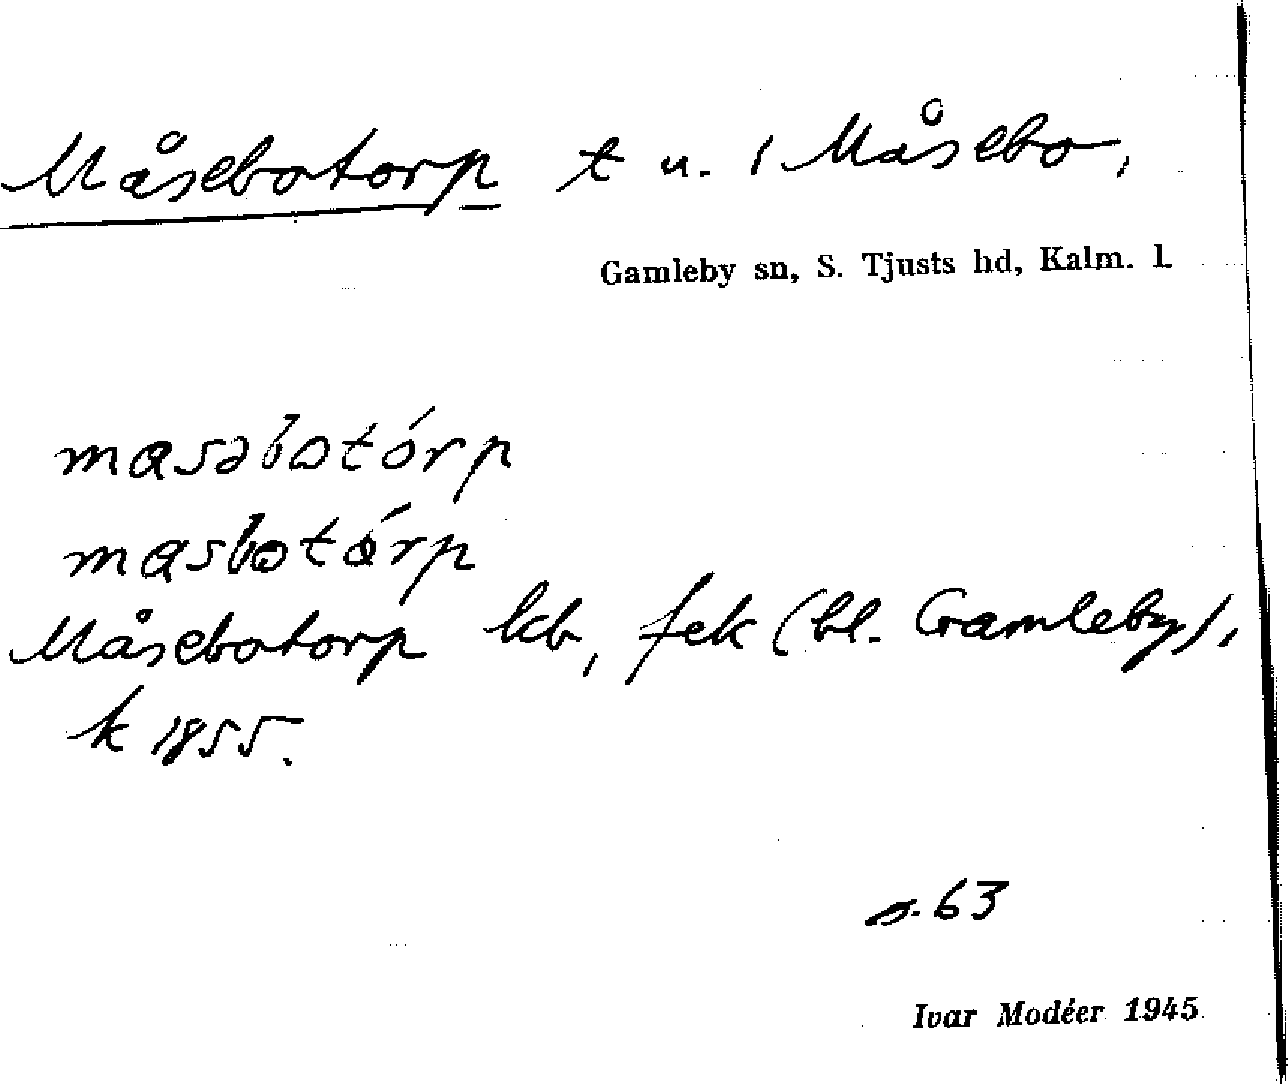 Måsebotorp t u. / Måsebo,
Gamleby sn, S. Tjusts hd, Kalm. l.
masəbotórp
masbotórp
Måsebotorp kb, fek (bl. Gamleby),
k 1855.
s. 63
Ivar Modéer 1945